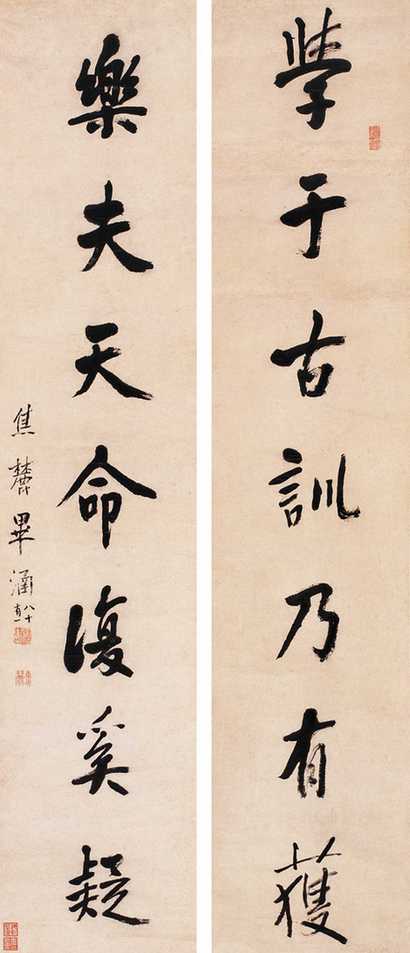 學于古訓乃有獲
樂夫天命復奚疑
焦麓畢涵
八十有一